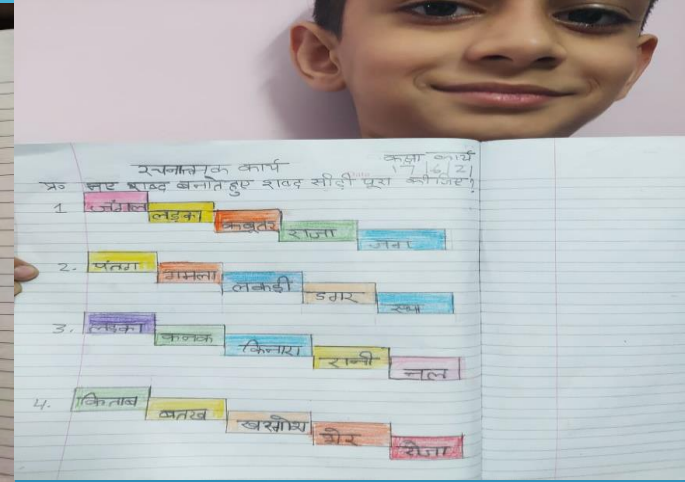 रचनात्मक कार्य
कक्षा कार्य
17/6/21
प्र० नए शब्द बनाते हुए शब्द सीढ़ी पूरा कीजिए?
1 जंगल लड़का कबूतर राजा
2. पंतग गमला लकड़ी डगर
3. लड़का कनक किनारा रानी नल
4. किताब बतख खरगोश शेर रोजा